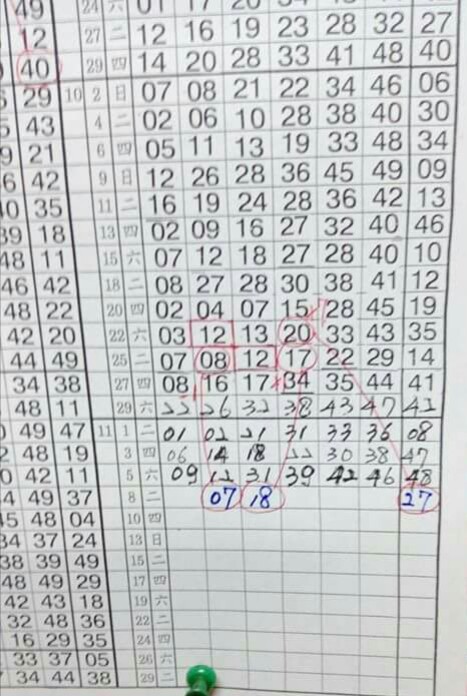 49 24 六 01 17 20 34
12 27 二 12 16 19 23 28 32 27
40 29 四 14 20 28 33 41 48 40
29 10 2 日 07 08 21 22 34 46 06
5 43 4 二 02 06 10 28 38 40 30
9 21 6 四 05 11 13 19 33 48 34
6 42 9 日 12 26 28 36 45 49 09
40 35 11 二 16 19 24 28 36 42 13
39 18 13 四 02 09 16 27 32 40 46
48 11 15 六 07 12 18 27 28 40 10
46 42 18 二 08 27 28 30 38 41 12
48 22 20 四 02 04 07 15 28 45 19
42 20 22 六 03 12 13 20 33 43 35
44 49 25 二 07 08 12 17 22 29 14
34 38 27 四 08 16 17 34 35 44 41
48 11 29 六 22 26 32 38 43 47 42
49 47 11 1 二 01 02 21 31 33 36 08
48 19 3 四 06 14 18 22 30 38 47
42 11 5 六 09 12 31 39 42 46 48
49 37 8 二 07 18 27
45 48 04 10 四
34 37 24 13 日
38 39 49 15 二
48 49 29 17 四
42 43 18 19 六
32 48 36 22 二
16 29 35 24 四
33 37 05 26 六
34 44 38 29 二